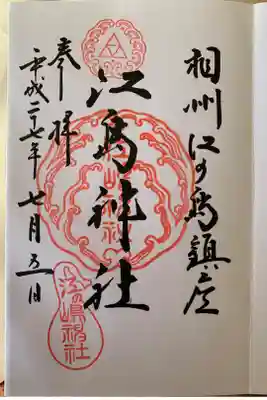 相州江の島鎮座
江島神社
奉拝
平成二十七年七月五日
江嶋神社